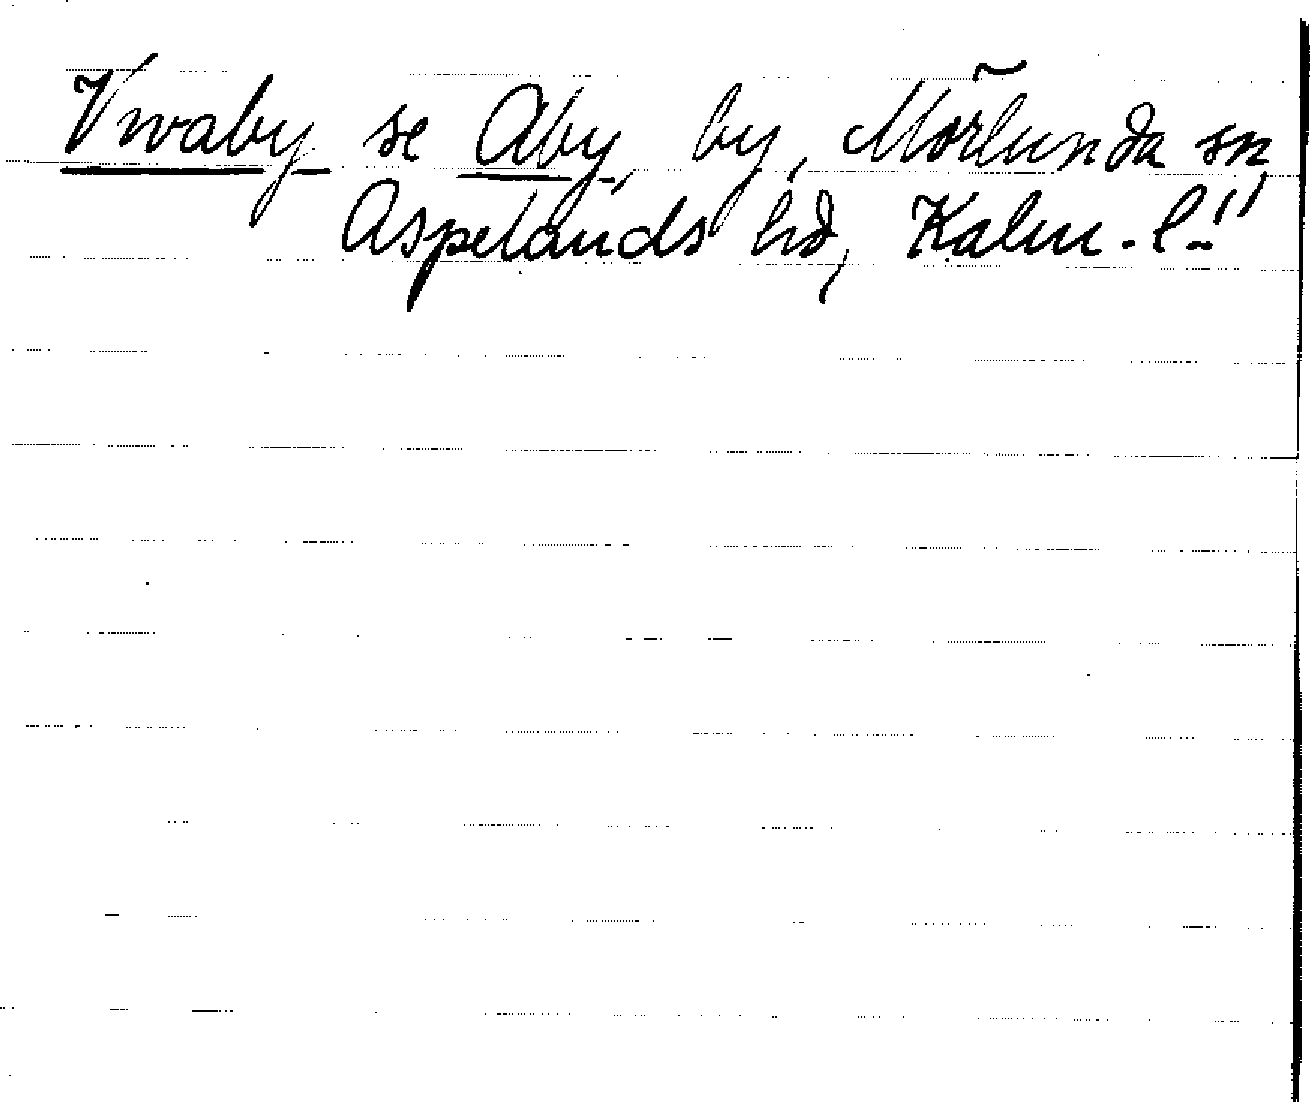 Vwaby se Aby, by, Mörlunda sn
Aspelands hd, Kalm. l.!!